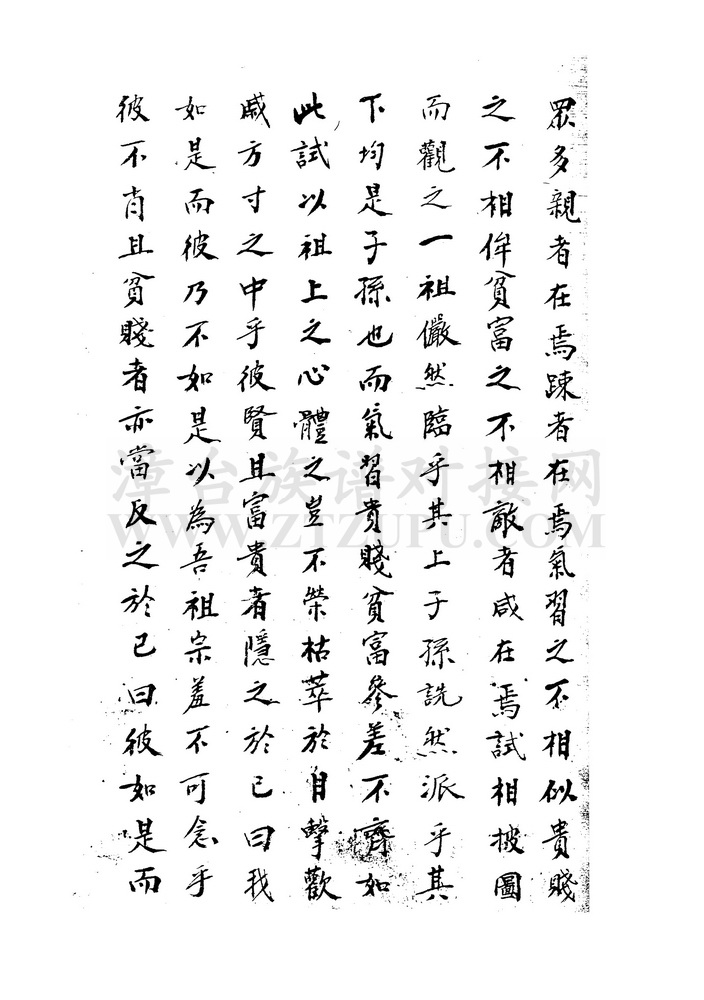 眾多親者在焉踈者在焉氣習之不相似貴賤
之不相侔貧富之不相敵者咸在焉試相披圖
而觀之一祖儼然臨乎其上子孫詵然派乎其
下均是子孫也而氣習貴賤貧富參差不齊如
此試以祖上之心體之豈不榮枯萃於目擊歡
戚方寸之中乎彼賢且富貴者隱之於已曰我
如是而彼乃不如是以為吾祖宗羞不可念乎
彼不肖且貧賤者亦當反之於已曰彼如是而
漳台族谱对接网
WWW.ZTZUPU.COM